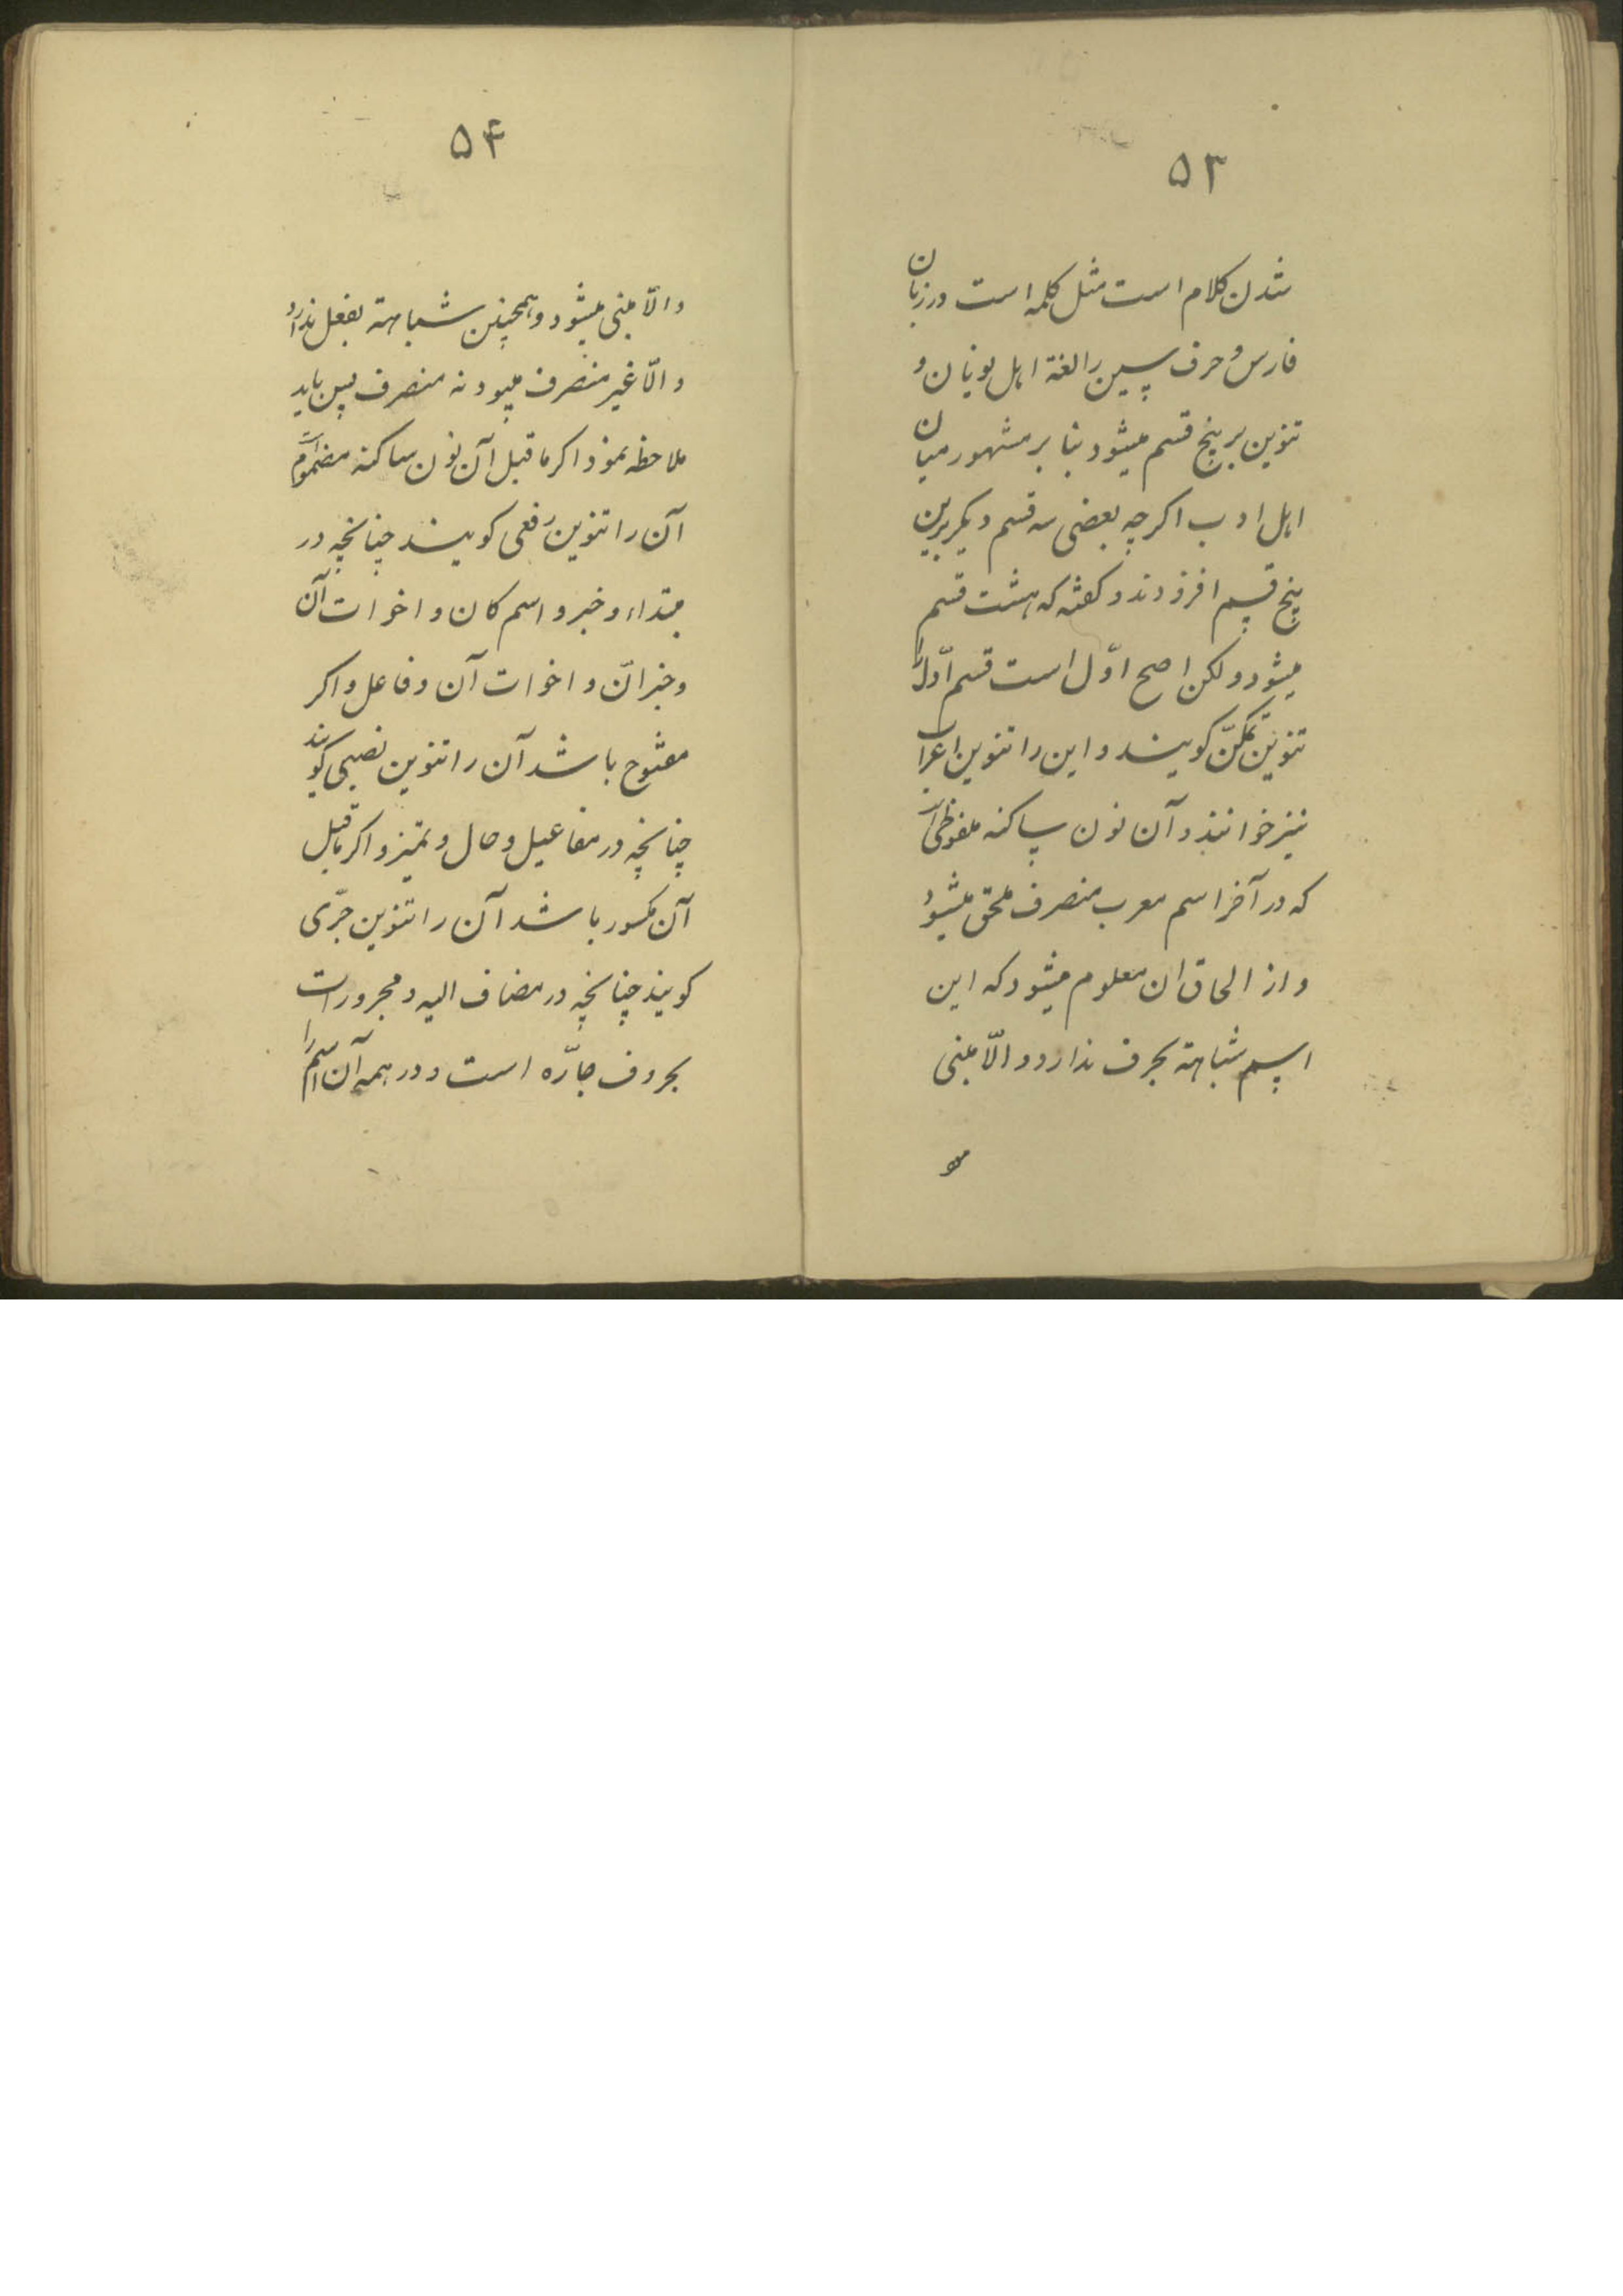 ۵۳
شدن کلام است مثل کلمه است در زبان
فارس و حرف سین را لغة اهل یونان و
تنوین بر پنج قسم میشود بنا بر مشهور میان
اهل ادب اکرچه بعضی سه قسم دیکر برین
پنج قسم افزودند و کفته که هشت قسم
میشود ولکن اصح اوّل است قسم اوّل را
تنوین تمکّن کویند و این را تنوین اعراب
نیز خوانند و آن نون ساکنه ملفوظی است
که در آخر اسم معرب منصرف ملحق میشود
و از الحاق ان معلوم میشود که این
اسم شباهة بحرف ندارد و الّا مبنی
۵۴
و الّا مبنی میشود و همچنین شباهة بفعل ندارد
و الّا غیر منصرف میبود نه منصرف پس باید
ملاحظه نمود اکر ما قبل آن نون ساکنه مضموم است
آن را تنوین رفعی کویند چنانچه در
مبتداء و خبر و اسم کان و اخوات آن
و خبر انّ و اخوات آن و فاعل و اکر
مفتوح باشد آن را تنوین نصبی کویند
چنانچه در مفاعیل و حال و تمیز و اکر ماقبل
آن مکسور باشد آن را تنوین جرّی
کویند چنانچه در مضاف الیه و مجرورات
بحروف جارّه است و در همه آن اسم را